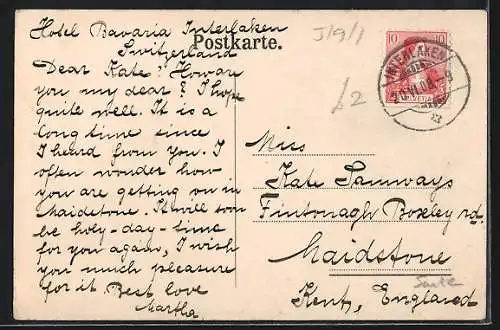 Hotel Bavaria Interlaken
Switzerland
Postkarte.
Dear Kate! How are
you my dear? I hope
quite well. It is a
long time since
I heard from you. I
often wonder how
you are getting on in
Maidstone. It will soon
be holy-day-time
for you again, I wish
you much pleasure
for it. Best love
Martha
J/9/1
£2
10 10
INTERLAKEN
20.VI.08.-9
HELVETIA
Miss
Kate Samways
Fintonagh Boxley rd.
Maidstone
Kent, England